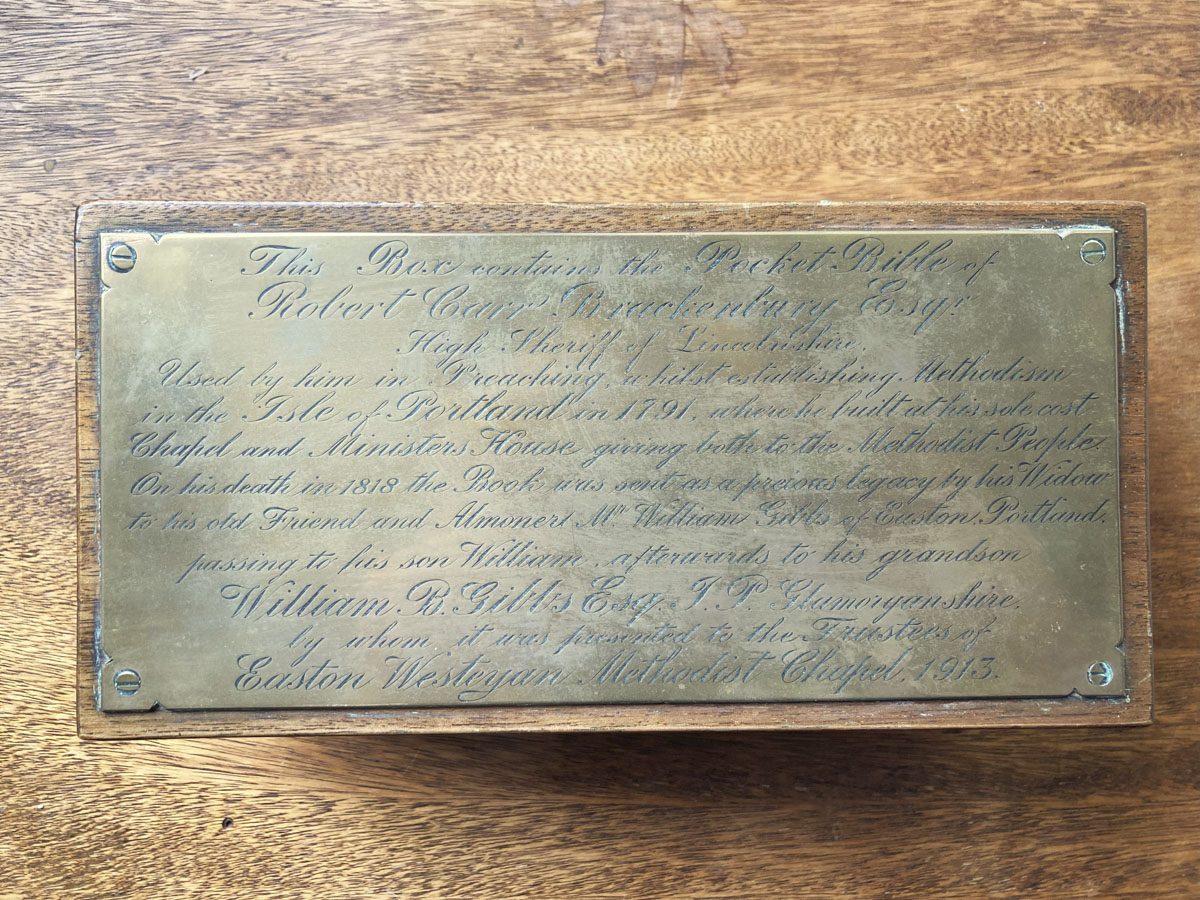 This Box contains the Pocket Bible of
Robert Carr Brackenbury Esqr.
High Sheriff of Lincolnshire.
Used by him in Preaching, whilst establishing Methodism
in the Isle of Portland in 1791, where he built at his sole cost
Chapel and Ministers House giving both to the Methodist People.
On his death in 1818 the Book was sent as a precious legacy by his Widow
to his old Friend and Almoner Mr. William Gibbs of Easton, Portland,
passing to his son William, afterwards to his grandson
William B. Gibbs Esq. J. P. Glamorganshire,
by whom it was presented to the Trustees of
Easton Wesleyan Methodist Chapel, 1913.